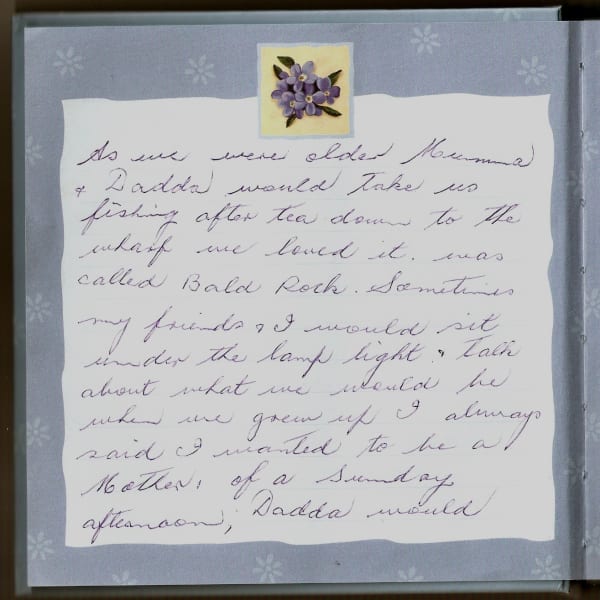 As we were older Mumma
& Dadda would take us
fishing after tea down to the
wharf we loved it. was
called Bald Rock. Sometimes
my friends & I would sit
under the lamp light & Talk
about what we would be
when we grew up I always
said I wanted to be a
Mother, of a Sunday
afternoon, Dadda would